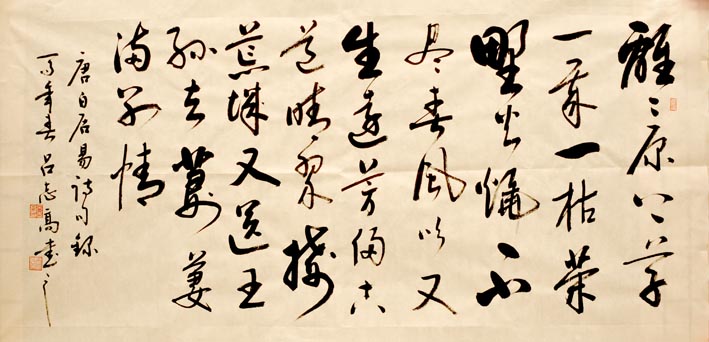 離〻原上草
一歲一枯榮
野火燒不
盡春風吹又
生遠芳侵古
道晴翠接
荒城又送王
孫去萋萋
滿別情
唐白居易詩句錄
年春呂志高書